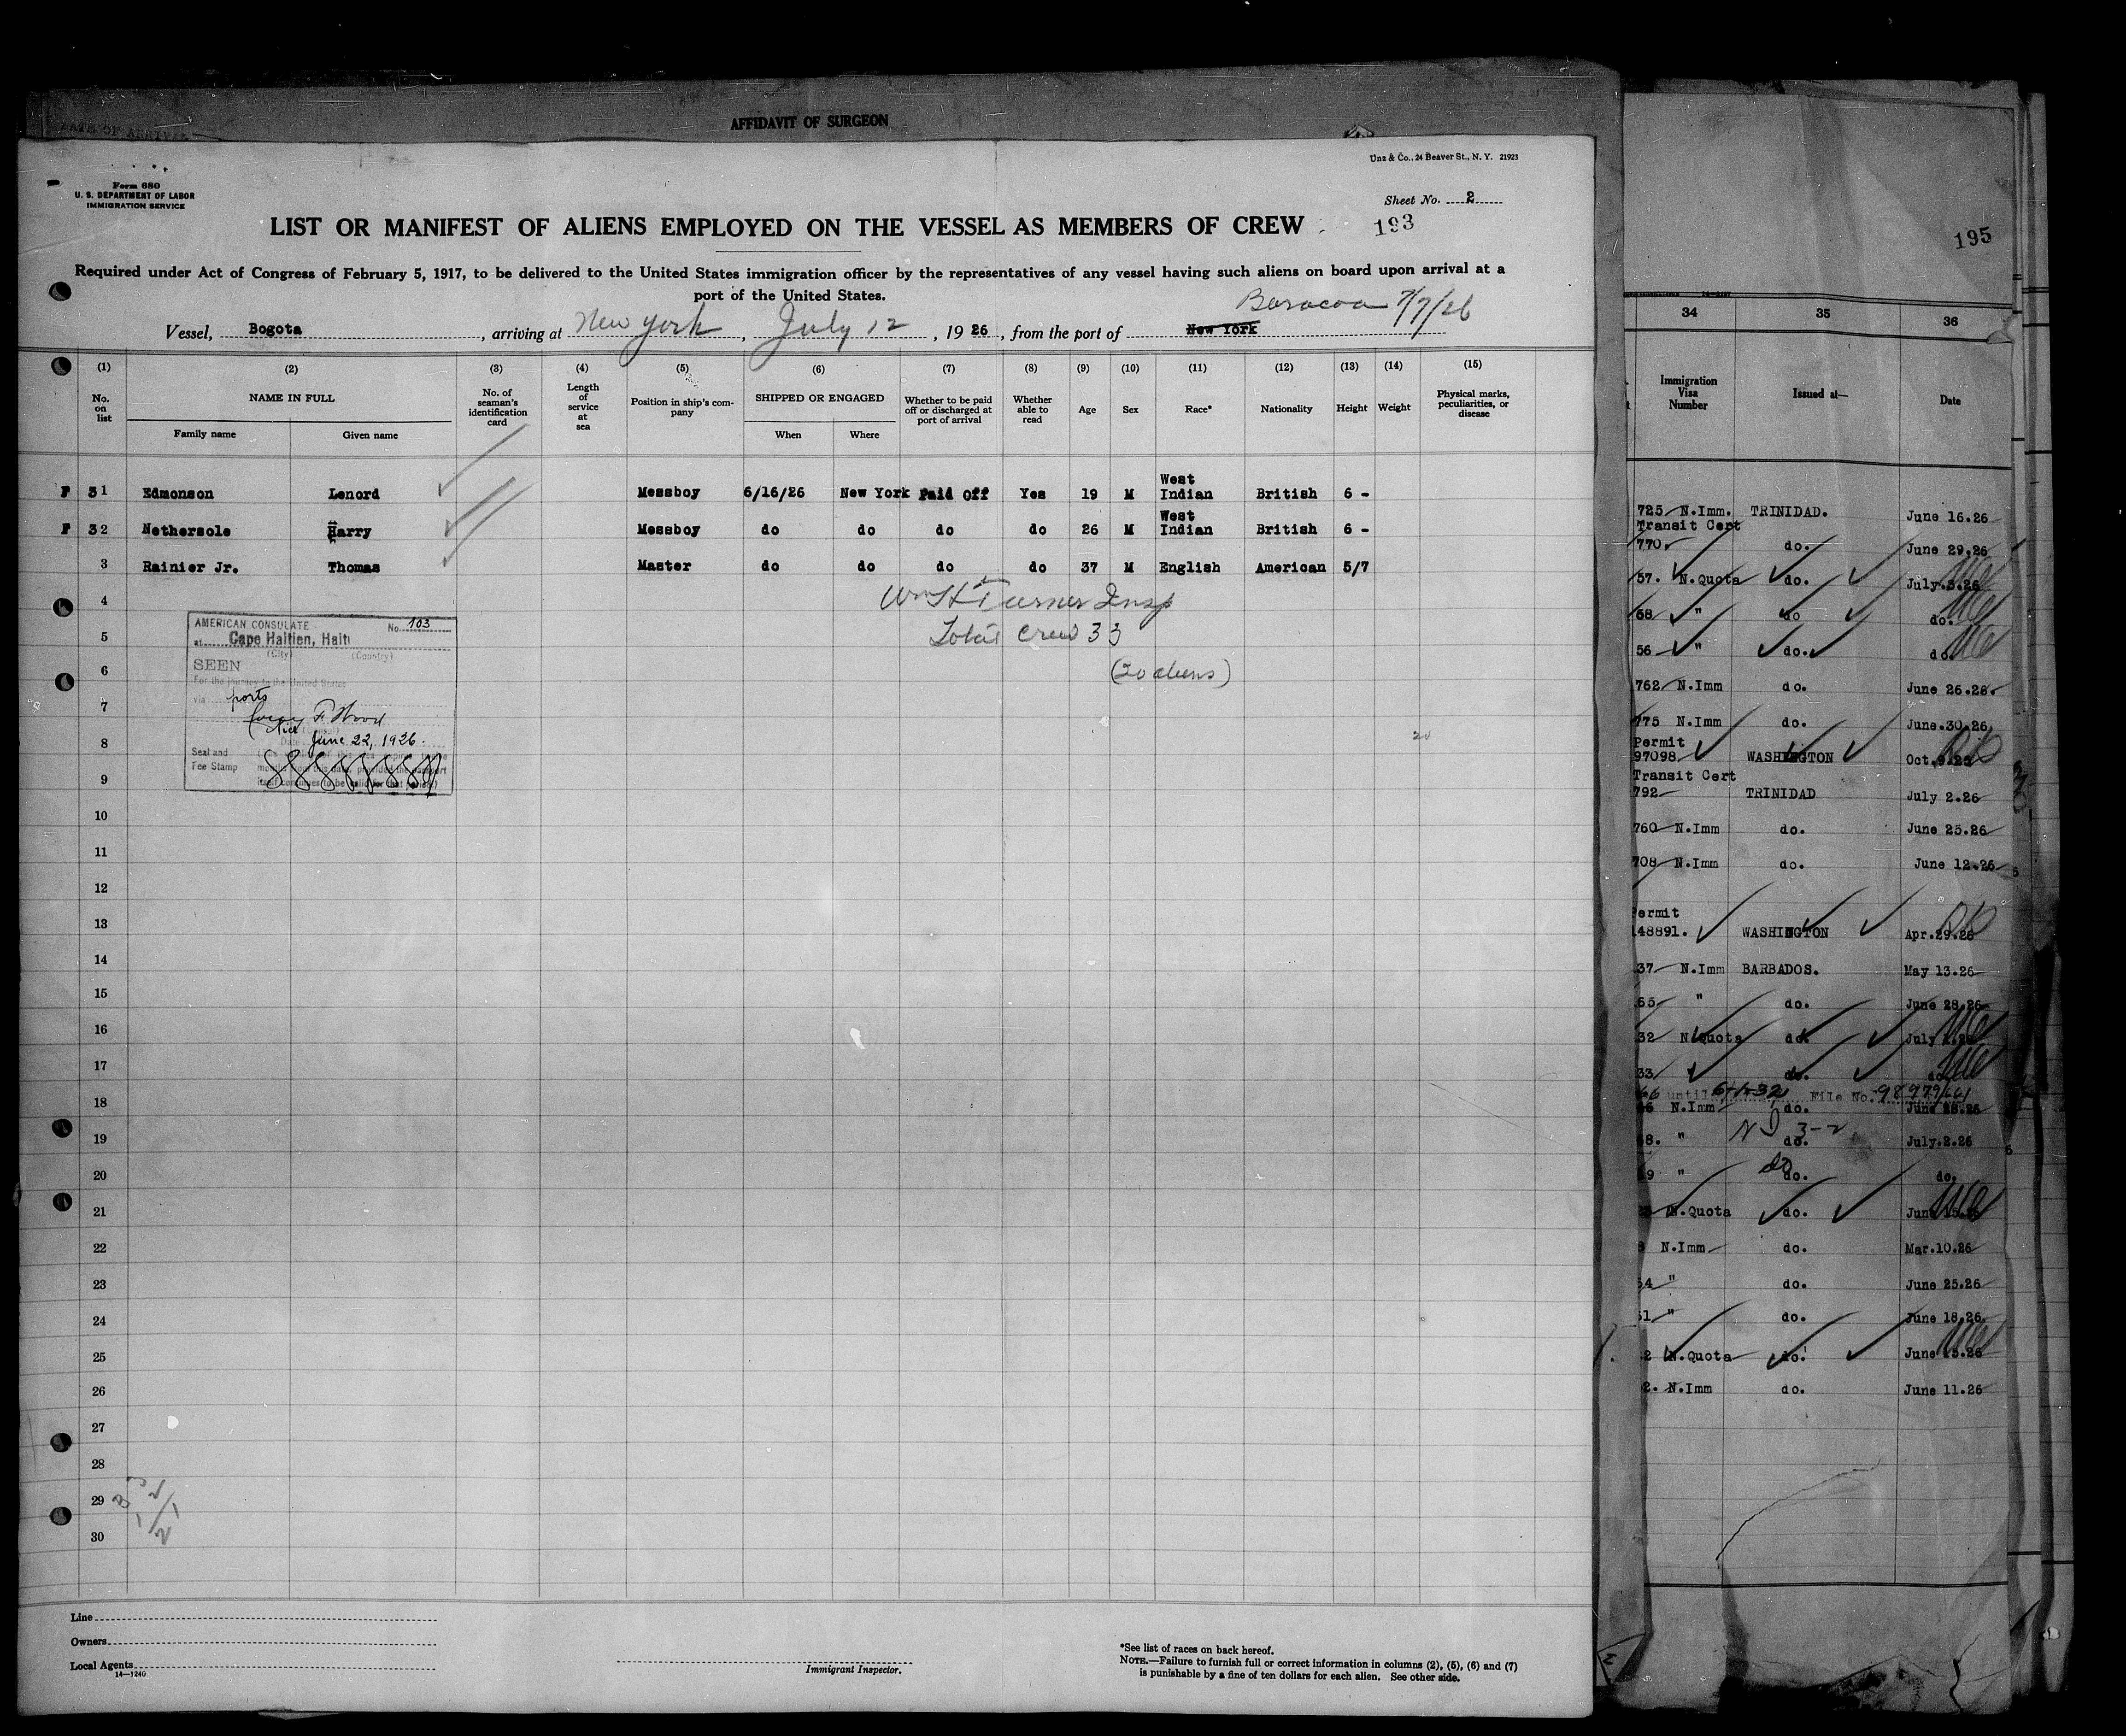 AFFIDAVIT OF SURGEON
Unz & Co., 24 Beaver St., N. Y. 21923
Form 680
U. S. DEPARTMENT OF LABOR
IMMIGRATION SERVICE
Sheet No. 2
LIST OR MANIFEST OF ALIENS EMPLOYED ON THE VESSEL AS MEMBERS OF CREW
193
Required under Act of Congress of February 5, 1917, to be delivered to the United States immigration officer by the representatives of any vessel having such aliens on board upon arrival at a
port of the United States.
Baracoa 7/7/26
Vessel, Bogota, arriving at New York, July 12, 1926, from the port of New York
(1) (2) (3) (4) (5) (6) (7) (8) (9) (10) (11) (12) (13) (14) (15)
No. on list
NAME IN FULL
Family name
Given name
No. of seaman's identification card
Length of service at sea
Position in ship's company
SHIPPED OR ENGAGED
When
Where
Whether to be paid off or discharged at port of arrival
Whether able to read
Age
Sex
Race*
Nationality
Height
Weight
Physical marks, peculiarities, or disease
F 31 Edmonson Lenord Messboy 6/16/26 New York Paid Off Yes 19 M West Indian British 6 -
F 32 Nethersole Harry Messboy do do do do 26 M West Indian British 6 -
3 Rainier Jr. Thomas Master do do do do 37 M English American 5/7
4 Wm H Turner Insp
5 Total Crew 33
6 (20 aliens)
7
8 20
9
10
11
12
13
14
15
16
17
18
19
20
21
22
23
24
25
26
27
28
29
30
AMERICAN CONSULATE No. 103
at Cape Haitien, Haiti
(City) (Country)
SEEN
For the journey to the United States
via ports
F. Wood
Date June 22, 1926.
Seal and
Fee Stamp
Line
Owners
Local Agents
14—1240
Immigrant Inspector.
*See list of races on back hereof.
NOTE.—Failure to furnish full or correct information in columns (2), (5), (6) and (7)
is punishable by a fine of ten dollars for each alien. See other side.
195
34 35 36
Immigration Visa Number
Issued at—
Date
725 N.Imm. TRINIDAD. June 16.26
Transit Cert
770. do. June 29.26
57. N.Quota do. July.3.26
58 " do do.
56 " do. do.
762 N.Imm do. June 26.26.
775 N.Imm do. June.30.26
Permit
97098 WASHINGTON Oct.9.25
Transit Cert
792 TRINIDAD July 2.26
760 N.Imm do. June 25.26
708 N.Imm do. June 12.26
Permit
148891. WASHINGTON Apr.29.26
37 N.Imm BARBADOS. May 13.26
55 " do. June 28.26
32 N.Quota do.
33 " do. do.
until 6-1-32 File No.
N.Imm do. June 28.26
" do. July.2.26
" do. do.
N.Quota do. June 15.26
N.Imm do. Mar.10.26
" do. June 25.26
" do. June 18.26
N.Quota do. June 15.26
N.Imm do. June 11.26